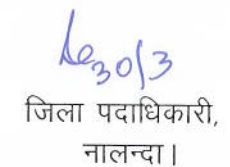 30/3
जिला पदाधिकारी,
नालन्दा।